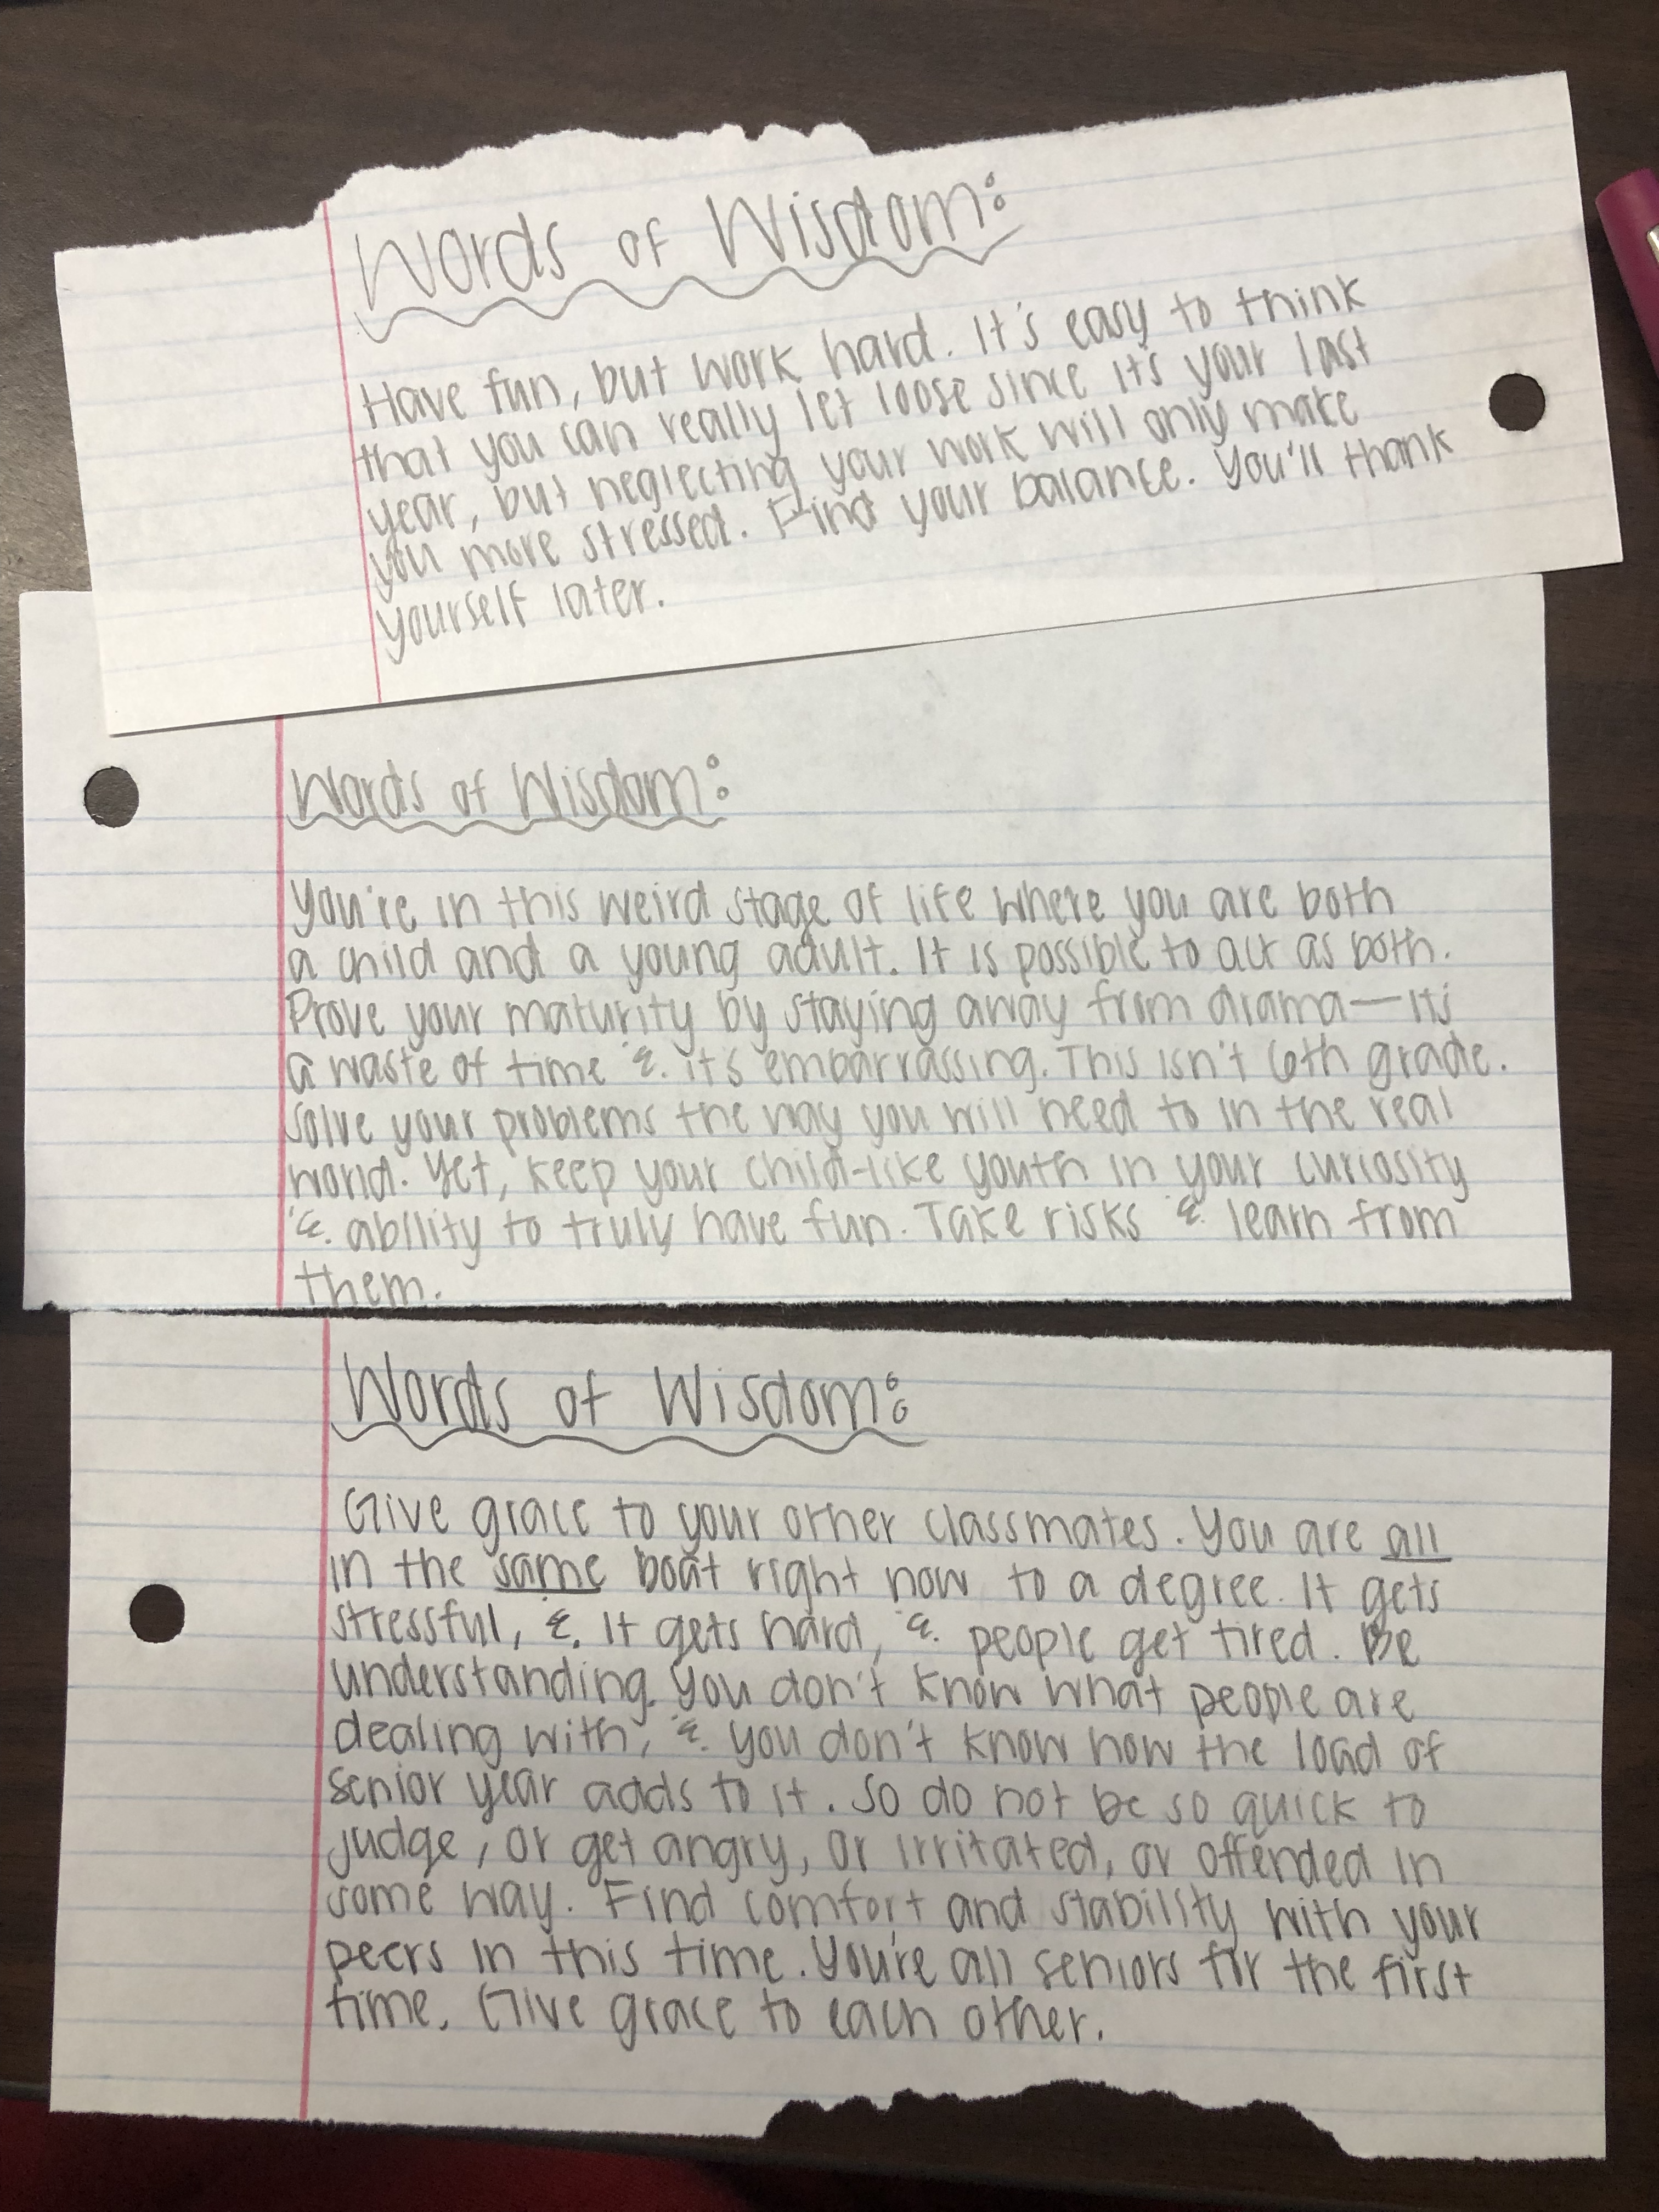 Words of Wisdom:
Have fun, but work hard. It's easy to think
that you can really let loose since it's your last
year, but neglecting your work will only make
you more stressed. Find your balance. You'll thank
yourself later.
Words of Wisdom:
You're in this weird stage of life where you are both
a child and a young adult. It is possible to act as both.
Prove your maturity by staying away from drama—its
a waste of time &. it's embarrassing. This isn't 6th grade.
Solve your problems the way you will need to in the real
world. Yet, keep your child-like youth in your curiosity
&. ability to truly have fun. Take risks &. learn from
them.
Words of Wisdom:
Give grace to your other classmates. You are all
in the same boat right now to a degree. It gets
stressful, &. it gets hard, &. people get tired. Be
understanding. You don't know what people are
dealing with, &. you don't know how the load of
senior year adds to it. So do not be so quick to
judge, or get angry, or irritated, or offended in
some way. Find comfort and stability with your
peers in this time. You're all seniors for the first
time. Give grace to each other.